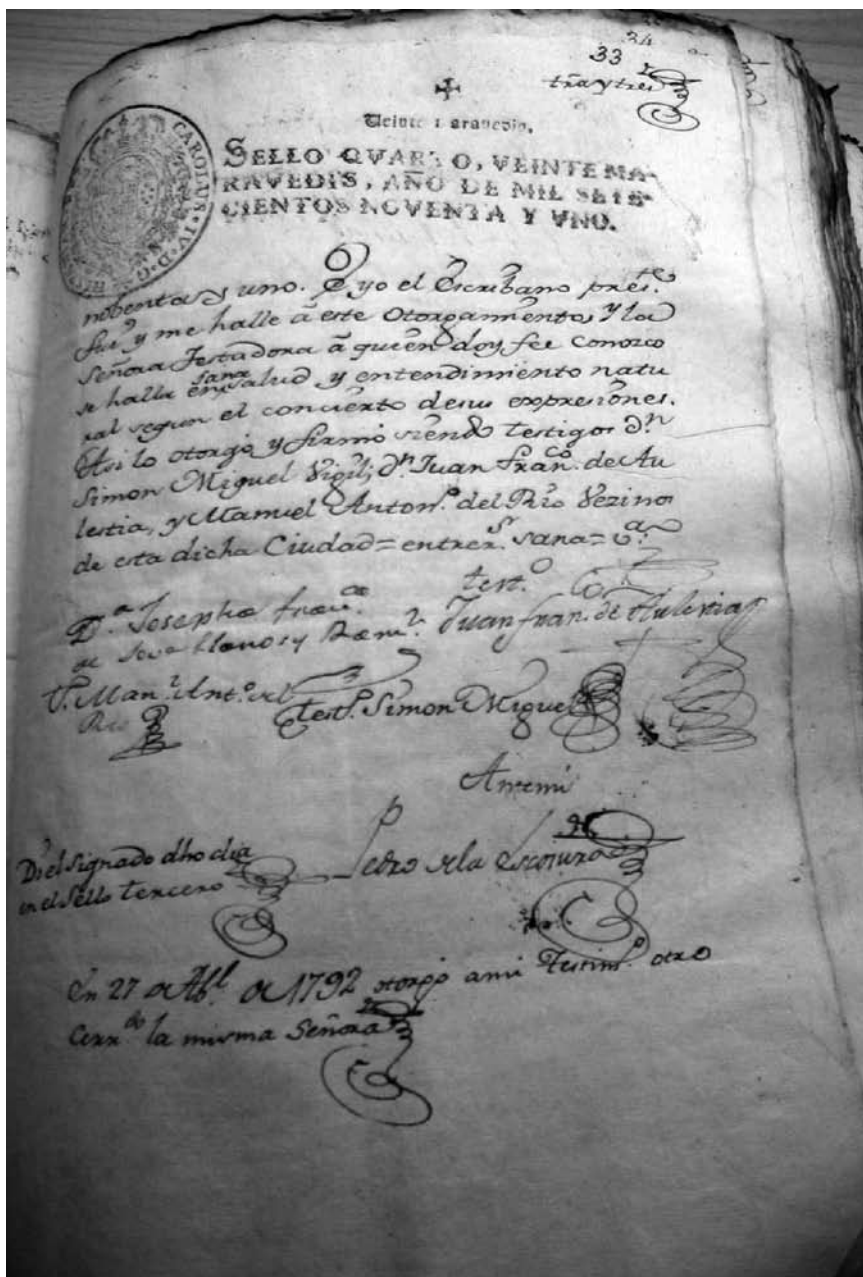 34
33
trꞛa y tres
Veinte maravedis.
SELLO QVARTO, VEINTE MA-
RAVEDIS, AÑO DE MIL SETE-
CIENTOS NOVENTA Y VNO.
CAROLVS · IV · D · G ·
nobenta y uno. E yo el Escribano preste.
fui, y me halle â este Otorgamiento, y la
Señora Testadora â quien doy fee conozco
se halla en sana salud, y entendimiento natu
ral segun el concierto de sus expresiones.
Asi lo otorgó y firmó siendo testigos dn.
Simon Miguel Vigil; dn. Juan Franco. de Au
lestia, y Manuel Anton.o del Rio Vezinos
de esta dicha Ciudad = entrer.s sana = va.
Da. Josepha Franca.
testo.
Juan Fran. de Aulestia
de Llanos y
To. Manl. Anto. del
Rio
testo. Simon Miguel
Antemi
Pedro dela Escosura
Di el signado dho dia
en el Sello tercero
En 27 de Abl. de 1792 otorgó ami Testimo. otro
Cerrdo. la misma Señora